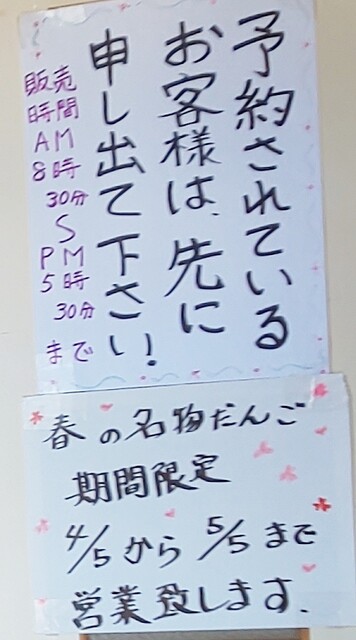 予約されている
お客様は、先に
申し出て下さい!
販売
時間
AM
8時
30分
S
PM
5時
30分
まで
春の名物だんご
期間限定
4/5から5/5まで
営業致します.